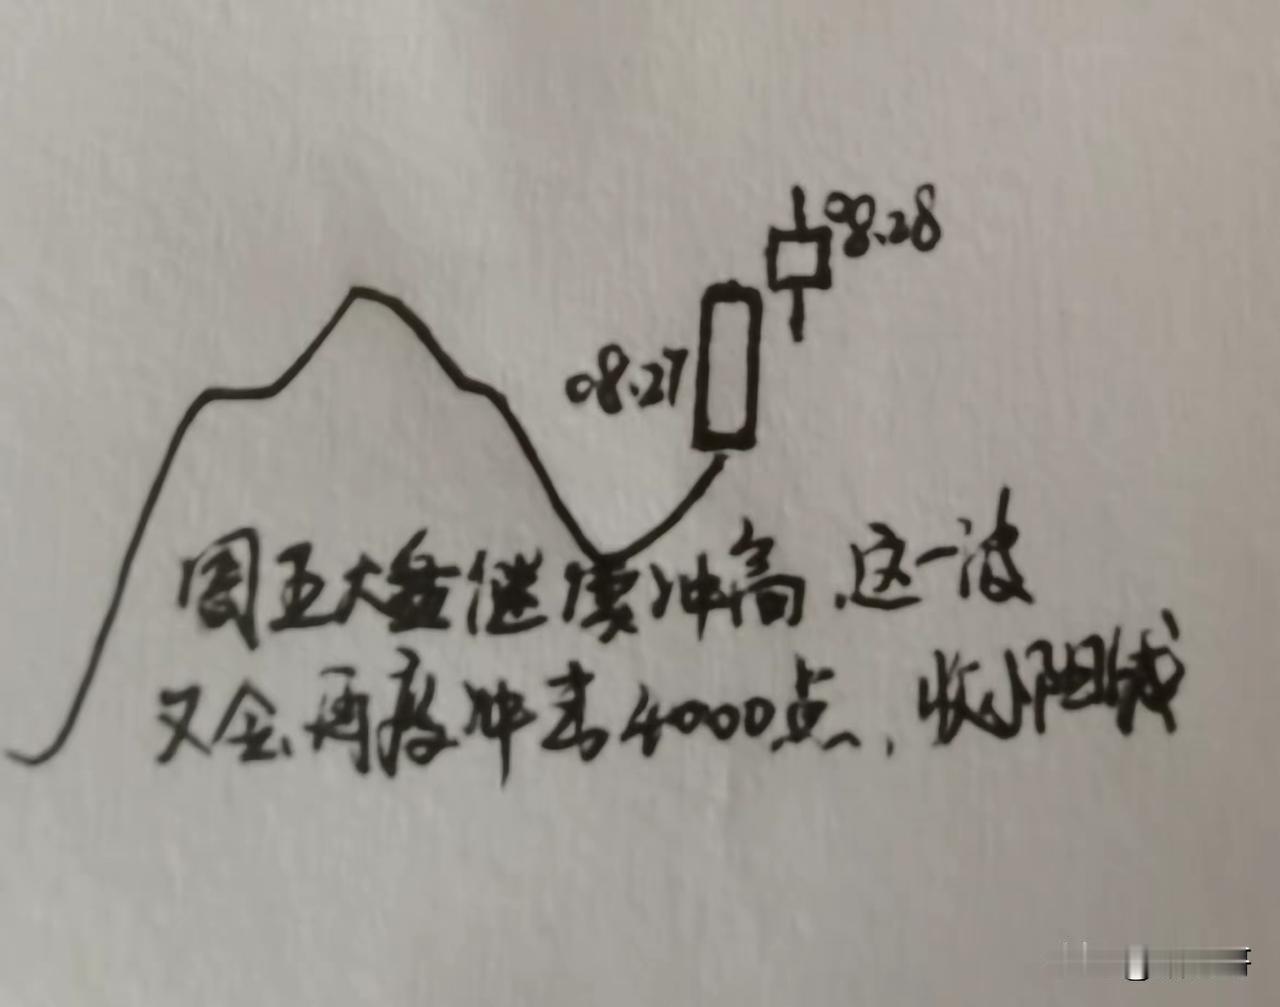 08.28
08.27
周五大盘继续冲高.这一波
又会再度冲击4000点,收小阳线